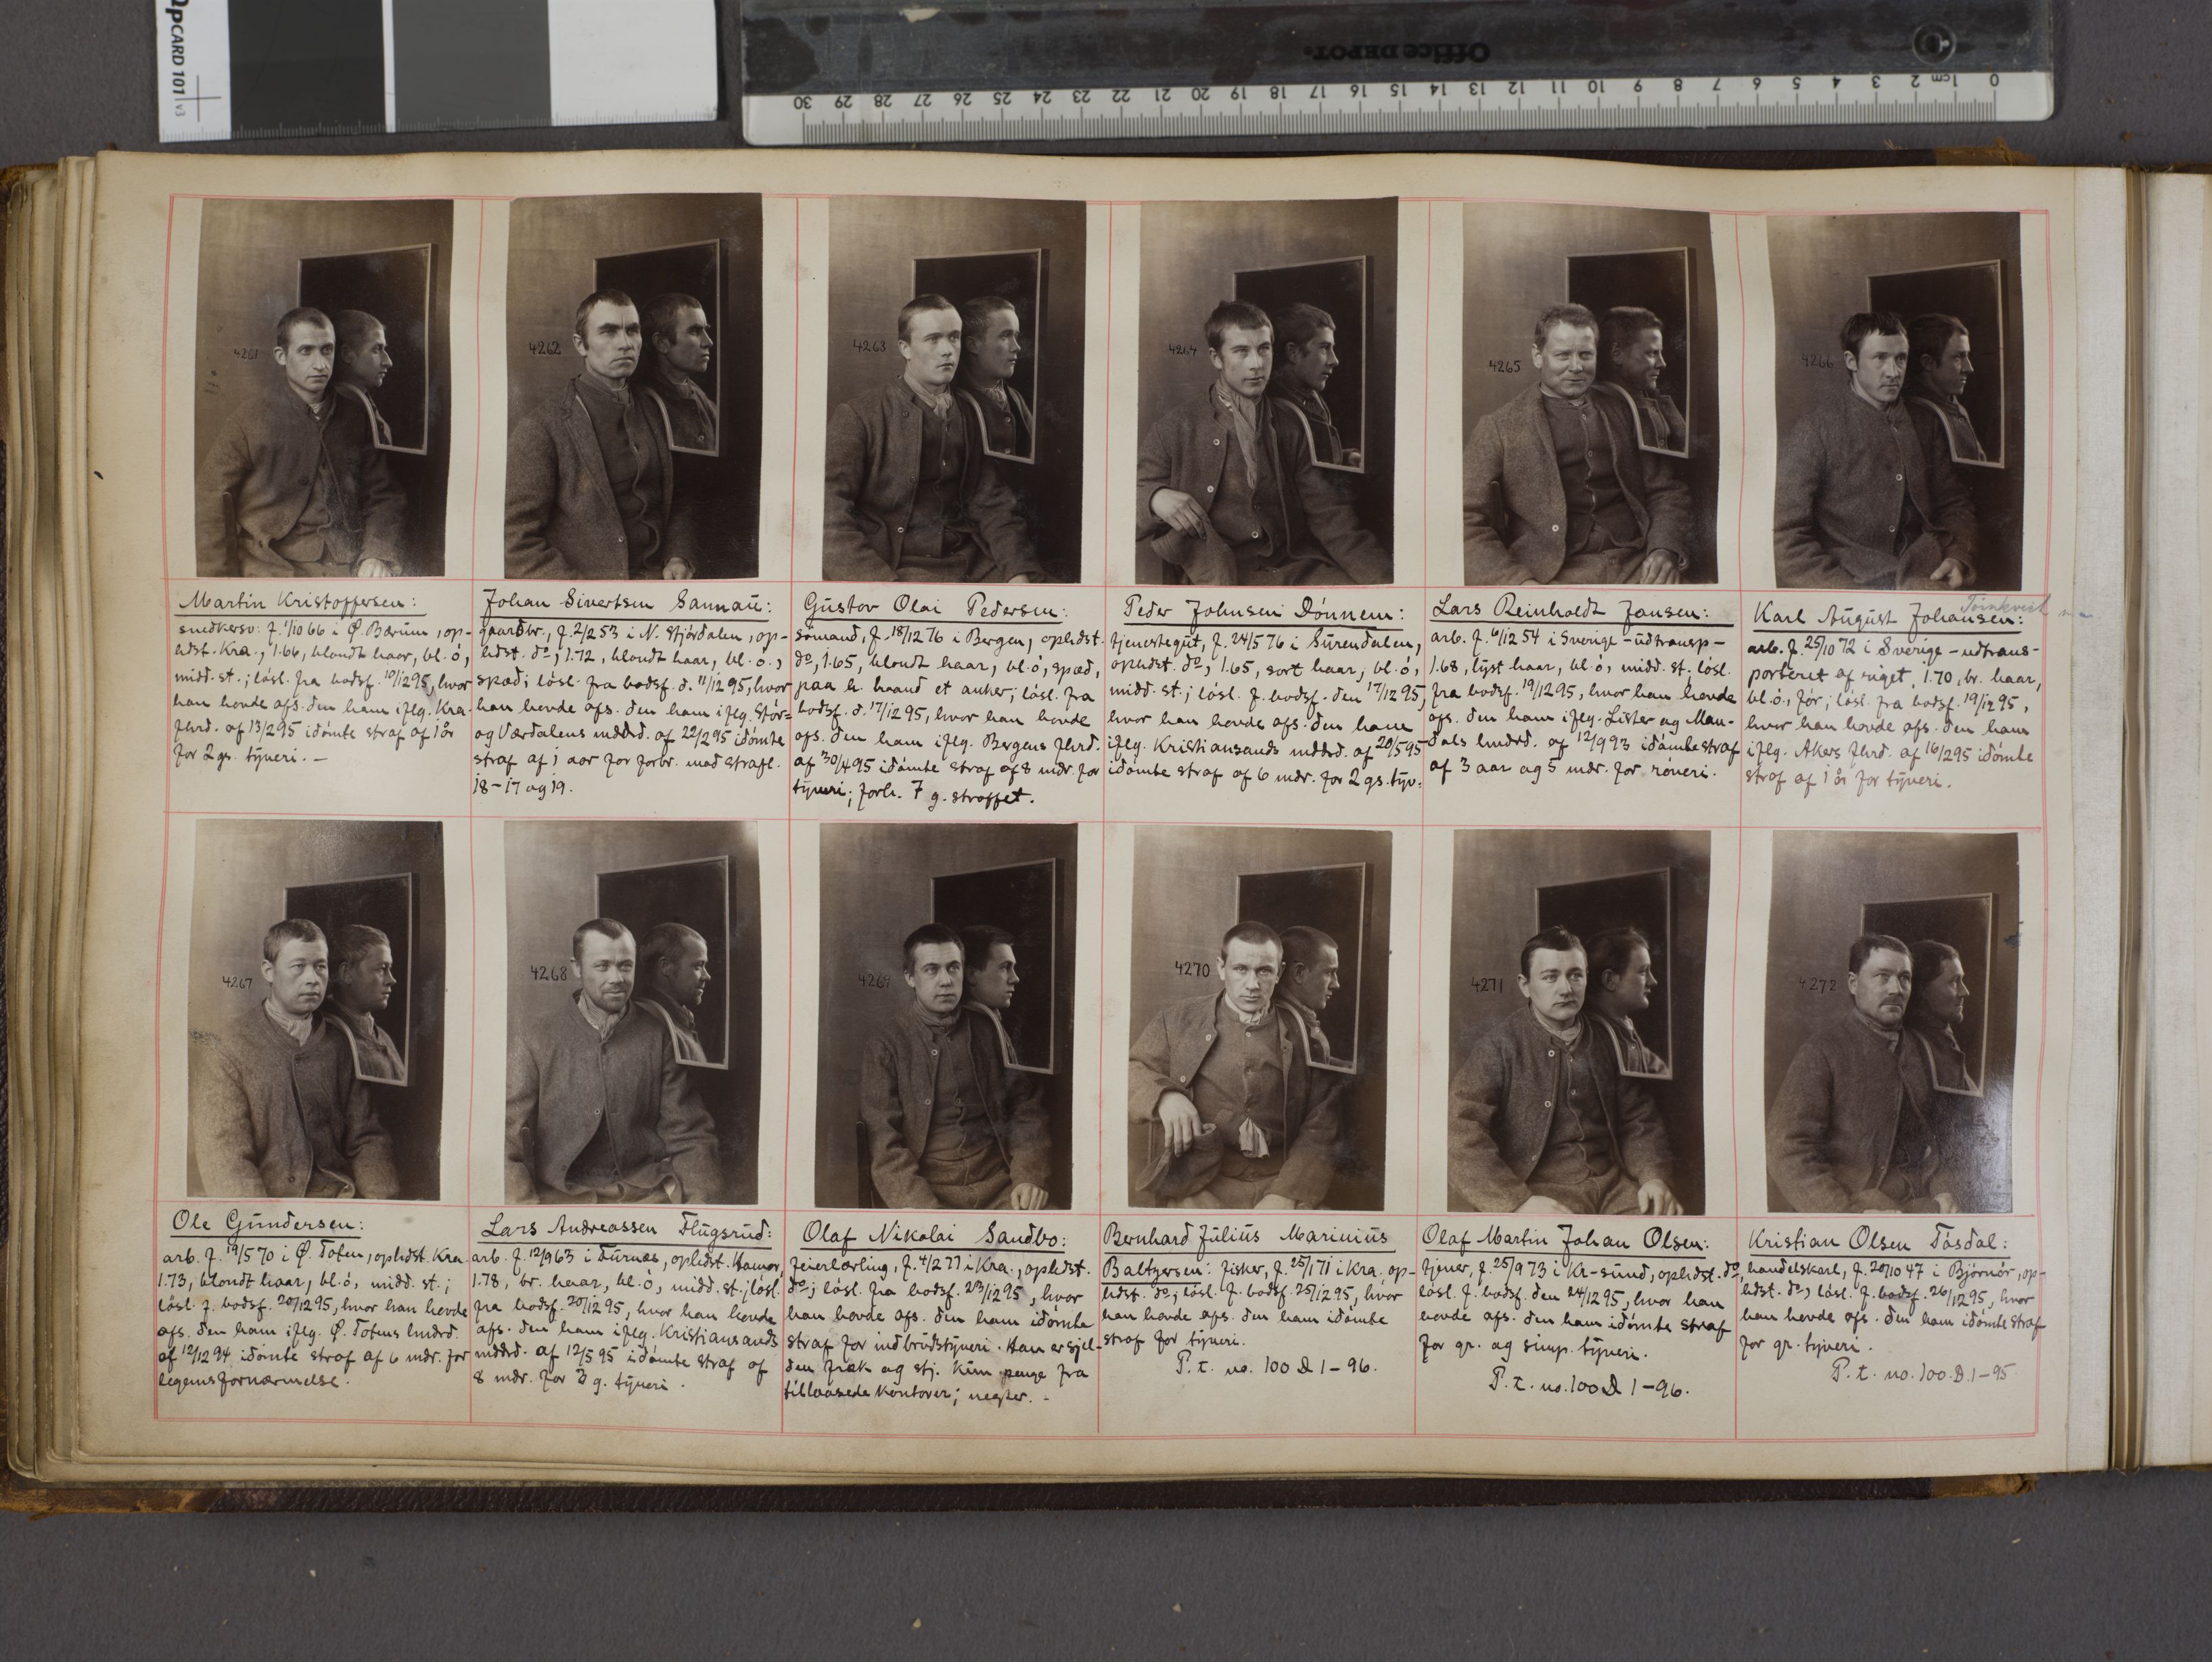 QPCARD 101 v3
Office DEPOT.
0 1cm 2 3 4 5 6 7 8 9 10 11 12 13 14 15 16 17 18 19 20 21 22 23 24 25 26 27 28 29 30
4261
4262
4263
4264
4265
4266
Martin Kristoffersen:
snedkersv. f. 1/10 66 i Ø. Bærum, op-
hdst. Kra., 1.66, blondt haar, bl. ö,
midd. st.; lösl. fra bodsf. 10/12 95, hvor
han havde afs. den ham iflg. Kra.
fhrd. af 13/2 95 idömte straf af 1 år
for 2 gs. tyveri. -
Johan Sivertsen Sannau:
gaardbr., f. 2/2 53 i N. Stjördalen, op-
hdst. do, 1.72, blondt haar, bl. ö.,
spæd; lösl. fra bodsf. d. 11/12 95, hvor
han havde afs. den ham iflg. Stör-
og Værdalens meddrd. af 22/2 95 idömte
straf af 1 aar for forbr. mod strafl.
18-17 og 19.
Gustav Olai Pedersen:
sömand, f. 18/12 76 i Bergen, ophdst.
do, 1.65, blondt haar, bl. ö, spæd,
paa h. haand et anker; lösl. fra
bodsf. d. 17/12 95, hvor han havde
afs. den ham iflg. Bergens fhrd.
af 30/4 95 idömte straf af 8 mdr. for
tyveri; forh. 7 g. straffet.
Peder Johnsen Dönnem:
tjenestegut, f. 24/5 76 i Surendalen,
ophdst. do, 1.65, sort haar, bl. ö,
midd. st.; lösl. f. bodsf. den 17/12 95,
hvor han havde afs. den ham
iflg. Kristiansands meddrd. af 20/5 95
idömte straf af 6 mdr. for 2 gs. tyv.
Lars Reinholdt Jansen:
arb. f. 6/12 54 i Sverige - udtransp -
1.68, lyst haar, bl. ö, midd. st. lösl.
fra bodsf. 19/12 95, hvor han havde
afs. den ham iflg. Lister og Man-
dals hmdrd. af 12/9 93 idömte straf
af 3 aar og 5 mdr. for röveri.
Karl August Johansen:
arb. f. 25/10 72 i Sverige - udtrans-
porteret af riget, 1.70, br. haar,
bl. ö., för; lösl. fra bodsf. 19/12 95,
hvor han havde afs. den ham
iflg. Akers fhrd. af 16/2 95 idömte
straf af 1 år for tyveri.
4267
4268
4269
4270
4271
4272
Ole Gundersen:
arb. f. 19/5 70 i Ø. Toten, ophdst. Kra
1.73, blondt haar, bl. ö, midd. st.;
lösl. f. bodsf. 20/12 95, hvor han havde
afs. den ham iflg. Ø. Totens hmdrd.
af 12/12 94 idömte straf af 6 mdr. for
legemsfornærmelse.
Lars Andreassen Flugsrud:
arb. f. 12/9 63 i Furnæs, ophdst. Hamar,
1.78, br. haar, bl. ö, midd. st.; lösl.
fra bodsf. 20/12 95, hvor han havde
afs. den ham iflg. Kristiansands
meddrd. af 12/5 95 idömte straf af
8 mdr. for 3 g. tyveri.
Olaf Nikolai Sandbo:
feierlærling, f. 4/2 77 i Kra., ophdst.
do; lösl. fra bodsf. 23/12 95, hvor
han havde afs. den ham idömte
straf for indbrudstyveri. Han er sjel-
den fræk og stj. kun penge fra
tillaasede kontorer; negter. -
Bernhard Julius Marinius
Baltzersen: fisker, f. 25/1 71 i Kra. op-
hdst. do; lösl. f. bodsf. 25/12 95, hvor
han havde afs. den ham idömte
straf for tyveri.
P. t. no. 100 D 1-96.
Olaf Martin Johan Olsen:
tjener, f. 25/9 73 i Kr-sund, ophdst. do,
lösl. f. bodsf. den 24/12 95, hvor han
havde afs. den ham idömte straf
for gr. og simp. tyveri.
P. t. no. 100 D 1-96.
Kristian Olsen Tåsdal:
handelskarl, f. 20/10 47 i Björnör, op-
hdst. do, lösl. f. bodsf. 26/12 95, hvor
han havde afs. den ham idömte straf
for gr. tyveri.
P. t. no. 100. D. 1-95